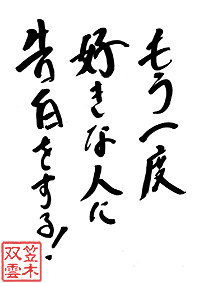 もう一度
好きな人に
告白をする!
笠木
双雲